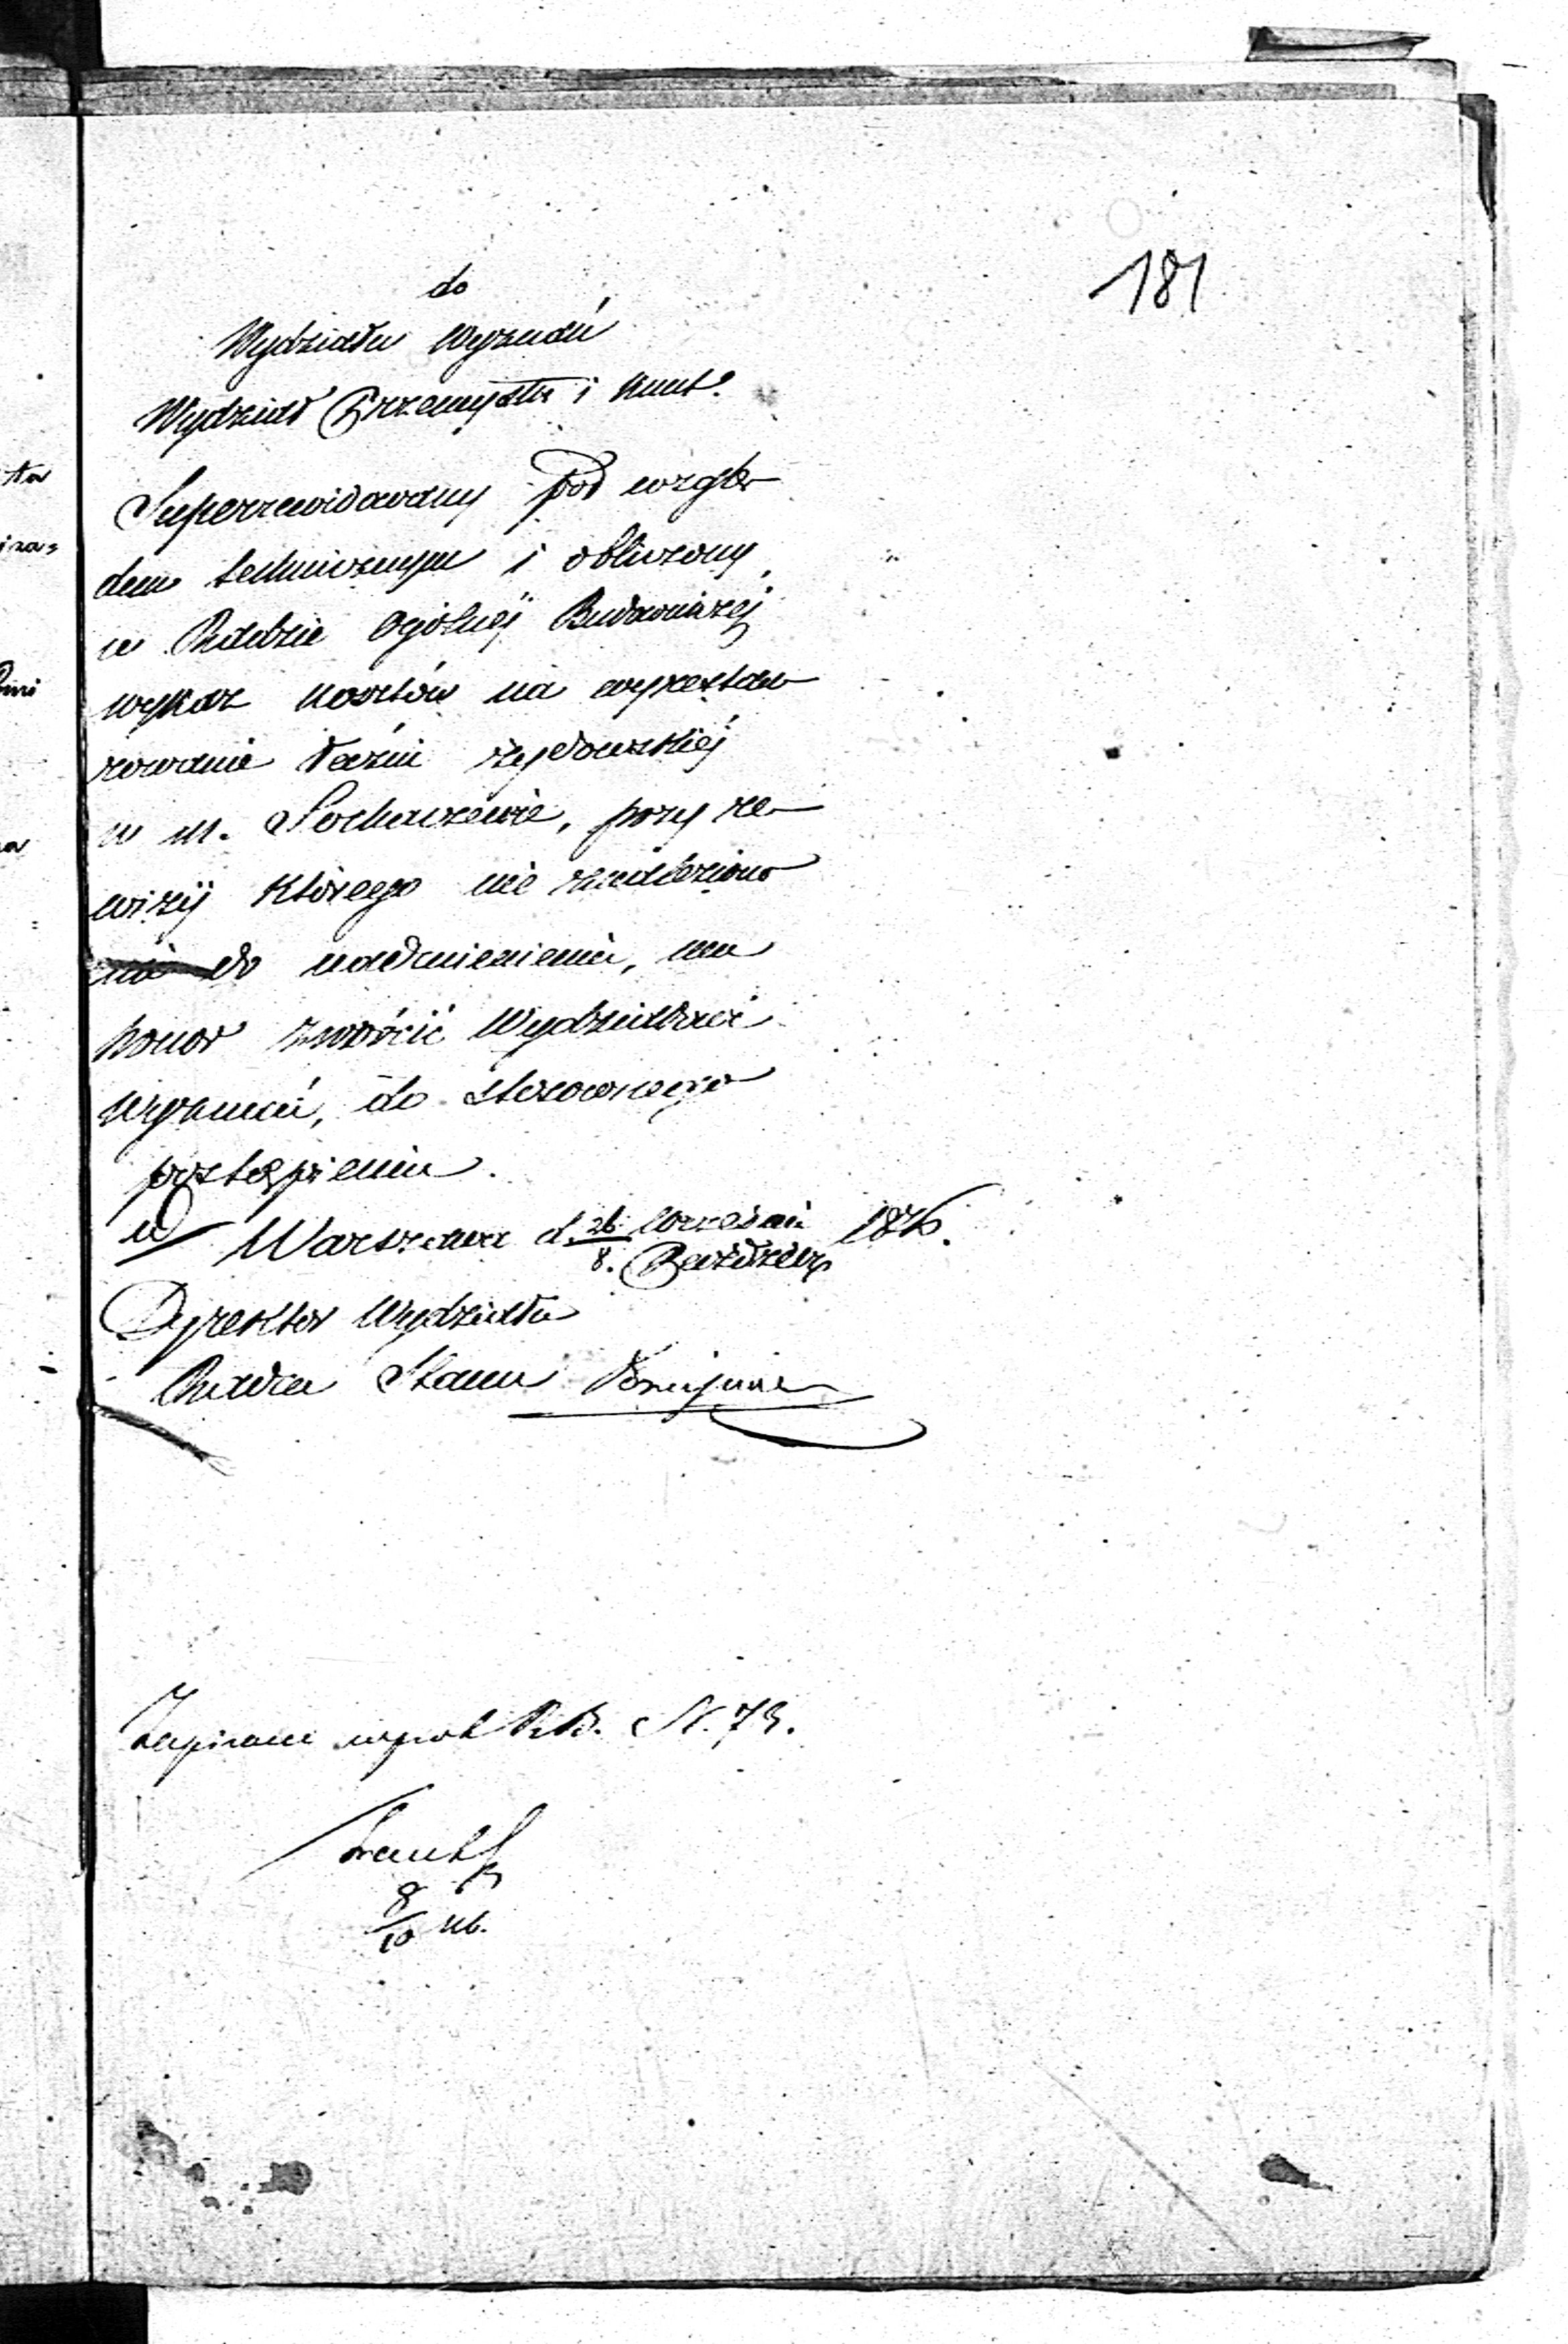 181
do
Wydziału Wyznań
Wydział Przemysłu i Kunst.
Superrewidowany pod wzglę-
dem technicznym i obliczony
w Radzie Ogólnej Budowniczej
wykaz kosztów na wyrestau-
rowanie łaźni żydowskiej
w m. Sochaczewie, przy re-
wizij którego nie znaleziono
nic do nadmienienia, ma
honor zwrócić Wydziałowi
Wyznań, do stosownego
postąpienia.
w Warszawie d. 26/8. Września/Paździer. 1846.
Dyrektor Wydziału
Radca Stanu
Zapisane w prot R.B. N. 73.
8/10 46.